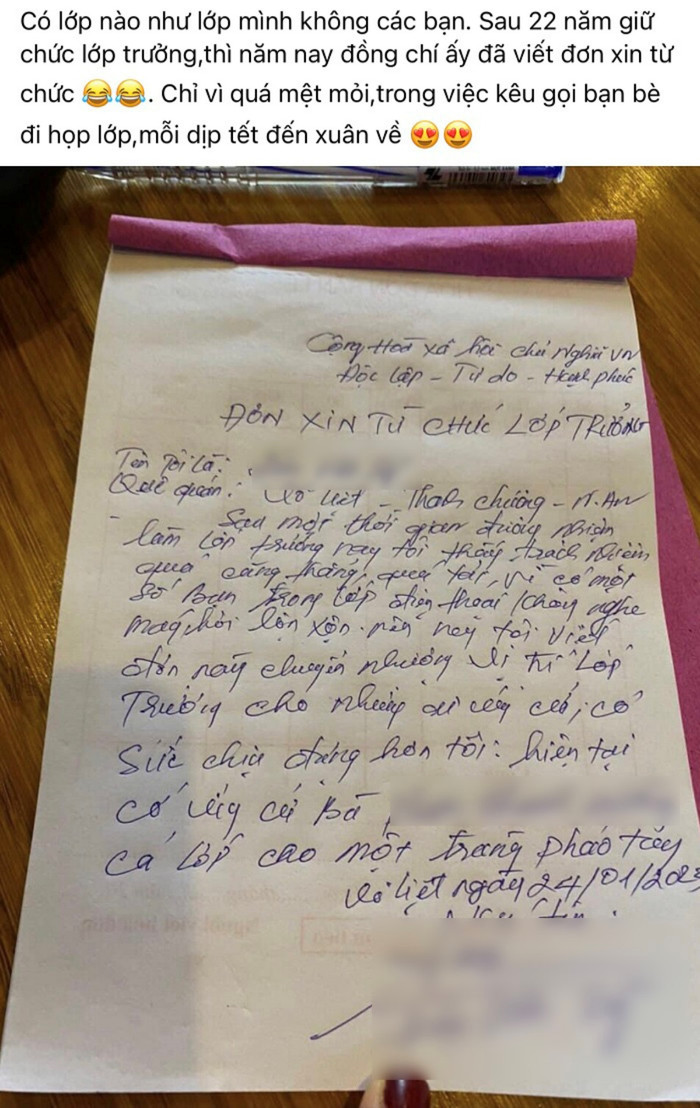 Có lớp nào như lớp mình không các bạn. Sau 22 năm giữ
chức lớp trưởng,thì năm nay đồng chí ấy đã viết đơn xin từ
chức 😂😂. Chỉ vì quá mệt mỏi,trong việc kêu gọi bạn bè
đi họp lớp,mỗi dịp tết đến xuân về 😍😍
Cộng Hoà xã hội chủ Nghĩa VN
Độc lập - Tự do - Hạnh phúc
ĐƠN XIN TỪ CHỨC LỚP TRƯỞNG
Tên tôi là:
Quê quán: Võ Liệt - Thanh chương - N.AN
- Sau một thời gian đương nhiệm
làm lớp trưởng nay tôi thấy trách nhiệm
quá căng thẳng, quá tải, vì có một
số bạn trong lớp điện thoại không nghe
lộn xộn. nên nay tôi viết
đơn này chuyển nhượng vị trí Lớp
Trưởng cho những ai ứng cử, có
Sức chịu đựng hơn tôi: hiện tại
có ứng cử Bà
cả lớp cho một tràng pháo tay
Võ liệt ngày 24/01/2023